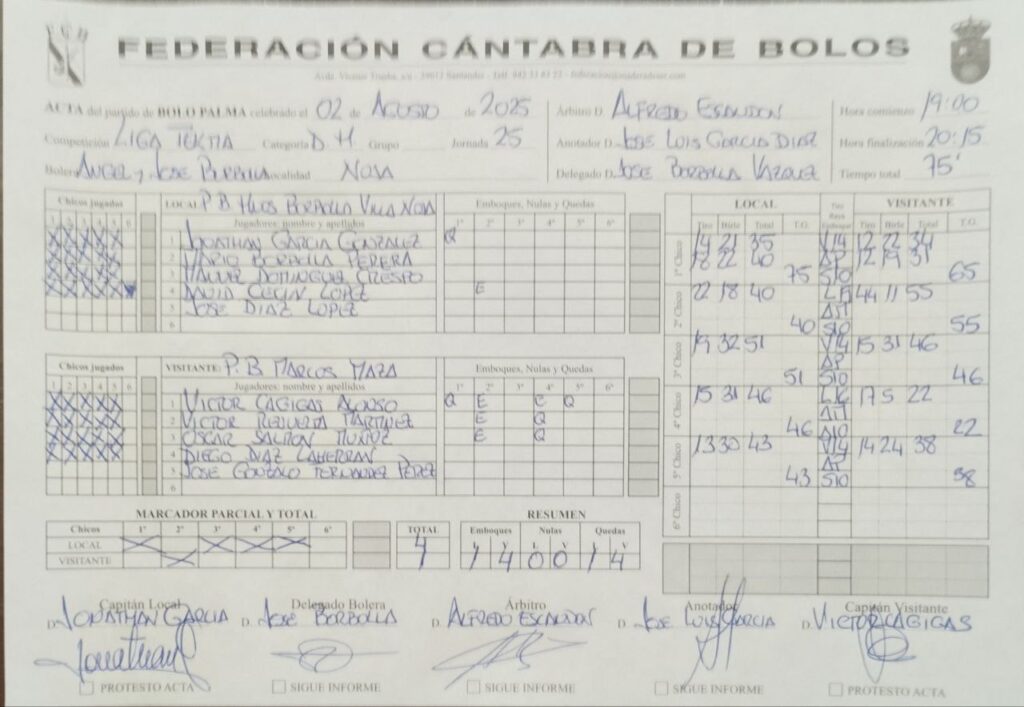 FEDERACIÓN CÁNTABRA DE BOLOS
ACTA del partido de BOLO PALMA celebrado el 02 de AGOSTO de 2025
Árbitro D. ALFREDO ESCANDON
Hora comienzo 19:00
Competición LIGA Categoría D.H Grupo Jornada 25
Anotador D. JOSE LUIS GARCIA DIAZ
Hora finalización 20:15
Bolera ANGEL y JOSE Localidad
Delegado D. JOSE BORBOLLA VAZQUEZ
Tiempo total 75'
Chicos jugados
1 2 3 4 5 6
LOCAL: P.B BORBOLLA VILLA
Jugadores: nombre y apellidos
Emboques, Nulas y Quedas
1º 2º 3º 4º 5º 6º
1 JONATHAN GARCIA GONZALEZ Q
2 MARIO BORBOLLA PERERA
3 DOMINGUEZ CRESPO
4 DAVID CECIN LOPEZ E
5 JOSE DIAZ LOPEZ
6
Chicos jugados
1 2 3 4 5 6
VISITANTE: P.B MARCOS MAZA
Jugadores: nombre y apellidos
Emboques, Nulas y Quedas
1º 2º 3º 4º 5º 6º
1 VICTOR CAGIGAS ALONSO Q E E Q
2 VICTOR MARTINEZ E Q
3 OSCAR SALMON MUÑOZ E Q
4 DIEGO DIAZ LAHERRAN
5 JOSE GONZALO FERNANDEZ PEREZ
6
LOCAL VISITANTE
Tiro Birle Total T.G. Tiro Raya Emboque Tiro Birle Total T.G.
1º Chico 14 21 35 V14 12 22 34
18 22 40 AP 12 19 31
75 S10 65
2º Chico 22 18 40 44 11 55
40 S10 55
3º Chico 19 32 51 V14 15 31 46
AP
51 S10 46
4º Chico 15 31 46 17 5 22
46 22
5º Chico 13 30 43 V14 14 24 38
AP
43 S10 38
6º Chico
MARCADOR PARCIAL Y TOTAL
Chicos 1º 2º 3º 4º 5º 6º TOTAL
LOCAL X X X X 4
VISITANTE X 1
RESUMEN
Emboques Nulas Quedas
L V L V L V
1 4 0 0 1 4
Capitán Local
D. JONATHAN GARCIA
Jonathan
PROTESTO ACTA
Delegado Bolera
D. JOSE BORBOLLA
SIGUE INFORME
Árbitro
D. ALFREDO ESCANDON
SIGUE INFORME
Anotador
D. JOSE LUIS GARCIA
SIGUE INFORME
Capitán Visitante
D. VICTOR CAGIGAS
PROTESTO ACTA